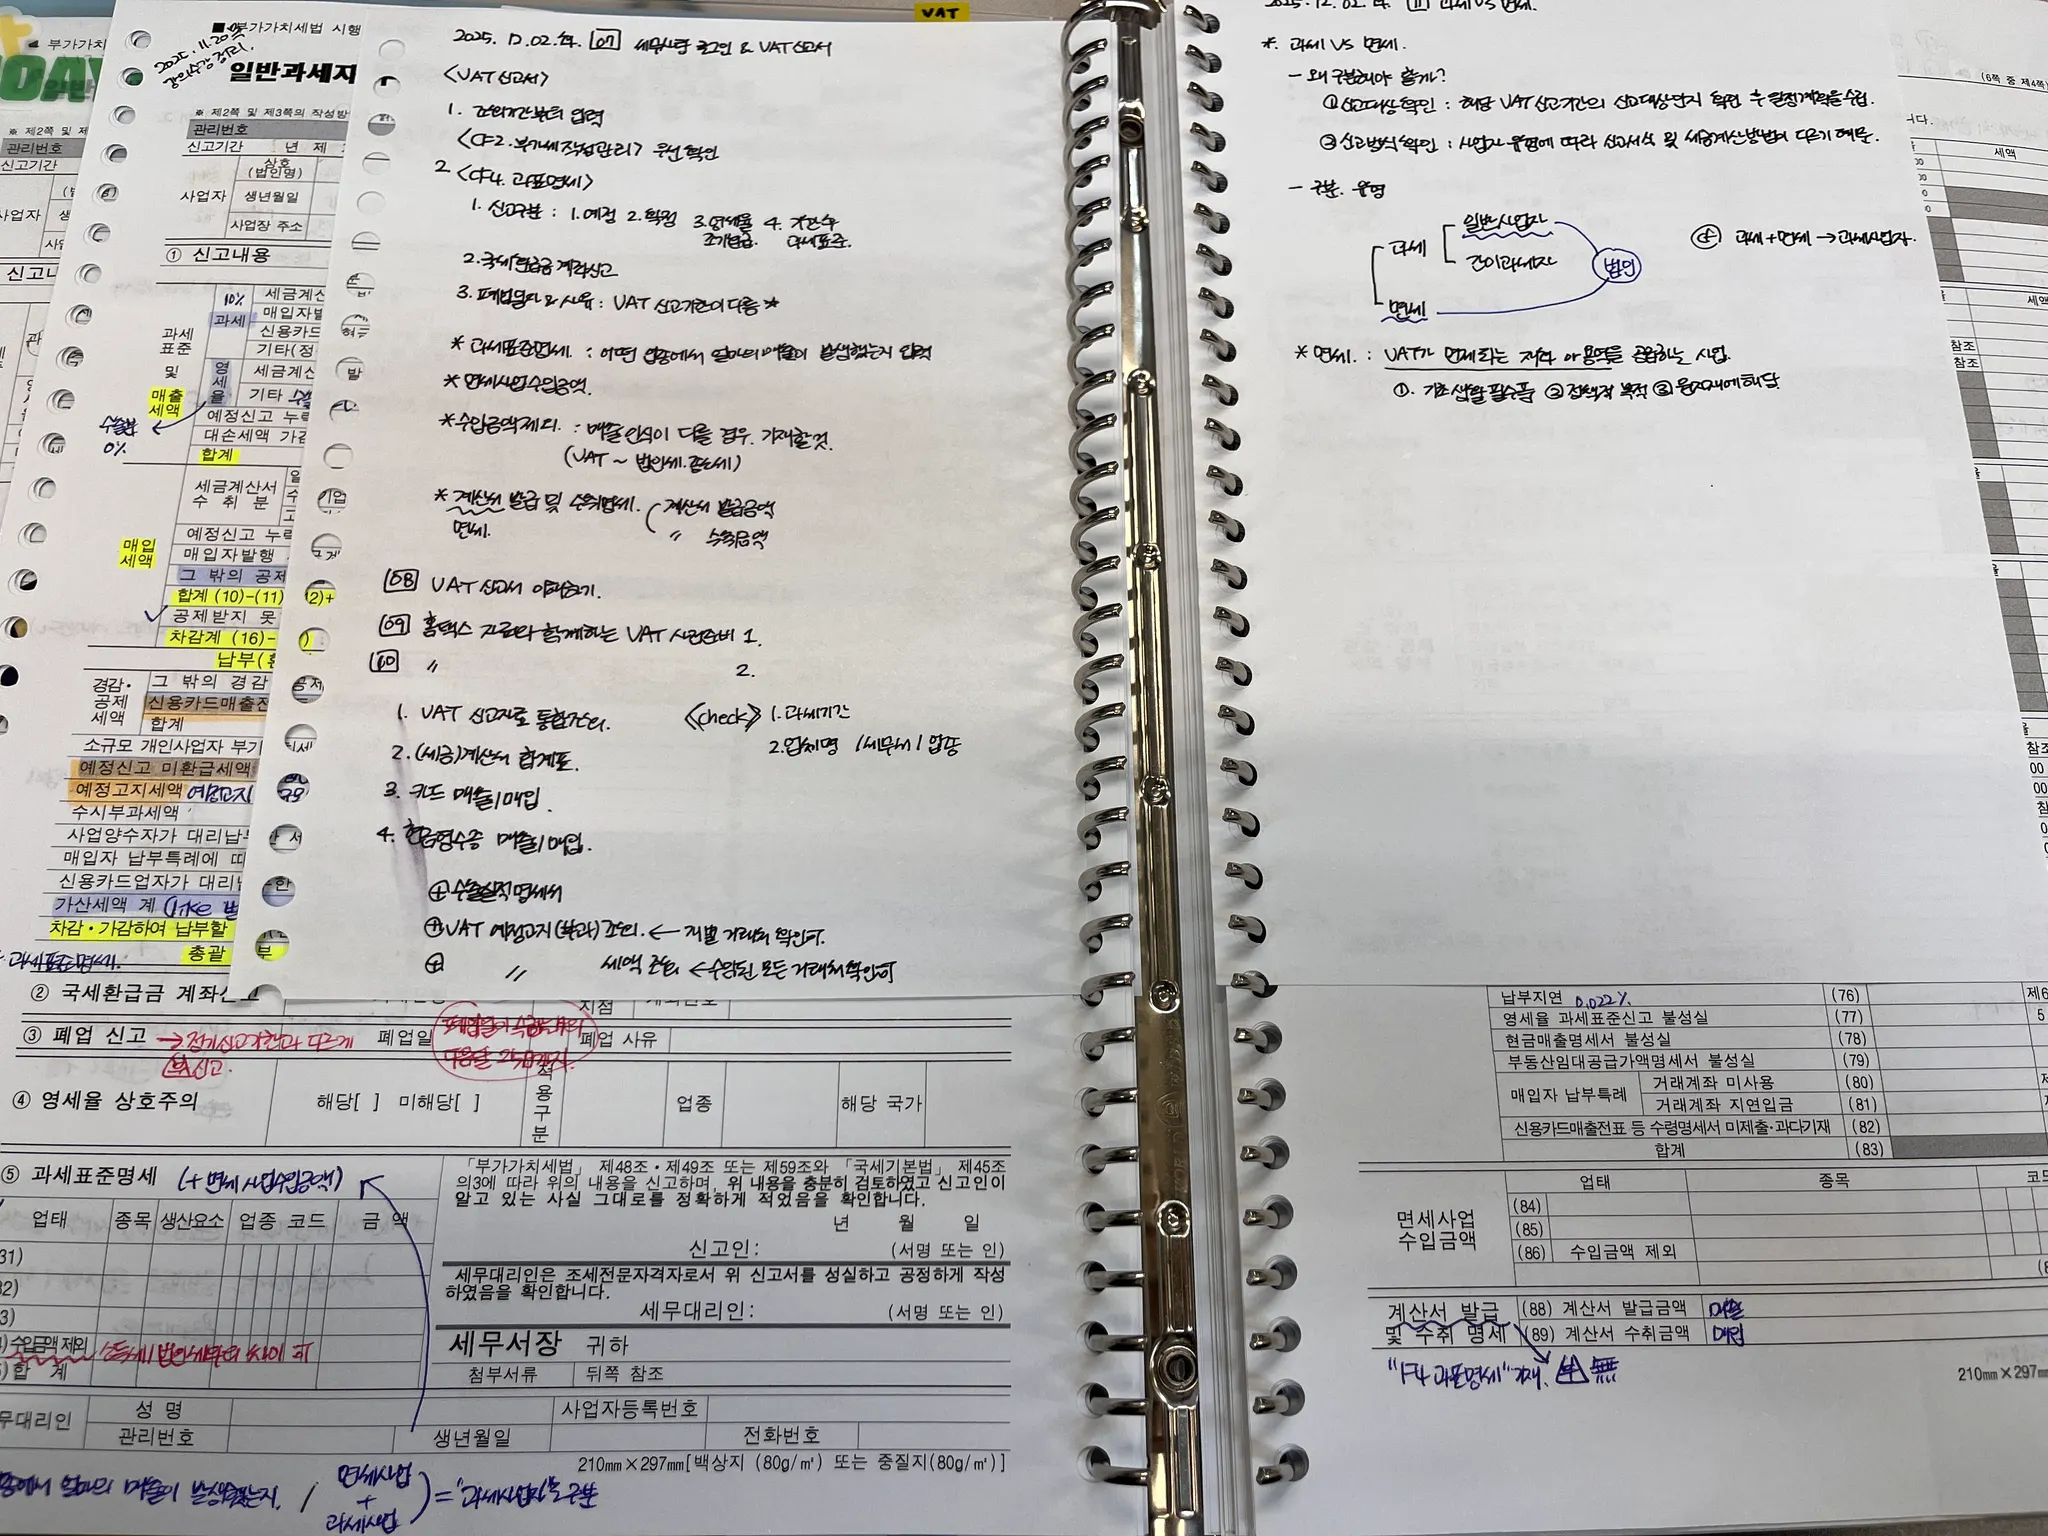 VAT
2025. 11. 20 목
강의수강 정리.
■ 부가가치세법 시행
일반과세자
※ 제2쪽 및 제3쪽의 작성방
관리번호
신고기간 년 제
사업자
상호
(법인명)
생년월일
사업장 주소
① 신고내용
과세
표준
및
매출
세액
10%
과세
세금계산
매입자발
신용카드
기타(정
영
세
율
세금계산
기타
수출분
0%
예정신고 누락
대손세액 가감
합계
매입
세액
세금계산서
수 취 분
예정신고 누락
매입자발행
그 밖의 공제
합계 (10)-(11)
공제받지 못
차감계 (16)-
납부(환
경감·
공제
세액
그 밖의 경감
신용카드매출전
합계
소규모 개인사업자 부가
예정신고 미환급세액
예정고지세액 예정고지
수시부과세액
사업양수자가 대리납부
매입자 납부특례에 따
신용카드업자가 대리납
가산세액 계 (like 벌
차감·가감하여 납부할
총괄
과세표준명세.
② 국세환급금 계좌신고
지점
③ 폐업 신고 → 정기신고기간과 다르게
폐업일
폐업 사유
폐업일이 속한 달의
다음달 25일까지.
④ 영세율 상호주의
해당[ ] 미해당[ ]
적용구분
업종
해당 국가
⑤ 과세표준명세 (+ 면세사업수입금액)
업태 종목 생산요소 업종 코드 금 액
수입금액 제외
소득세/법인세와의 차이
합 계
「부가가치세법」 제48조·제49조 또는 제59조와 「국세기본법」 제45조
의3에 따라 위의 내용을 신고하며, 위 내용을 충분히 검토하였고 신고인이
알고 있는 사실 그대로를 정확하게 적었음을 확인합니다.
년 월 일
신고인: (서명 또는 인)
세무대리인은 조세전문자격자로서 위 신고서를 성실하고 공정하게 작성
하였음을 확인합니다.
세무대리인: (서명 또는 인)
세무서장 귀하
첨부서류 뒤쪽 참조
무대리인
성 명
사업자등록번호
관리번호
생년월일
전화번호
210㎜×297㎜[백상지 (80g/㎡) 또는 중질지(80g/㎡)]
얼마의 매출이 발생했는지. / 면세사업 + 과세사업 ) = "과세사업자"로 구분
2025. 12. 02. 화. 07 세무사랑 로그인 & VAT신고서
<VAT 신고서>
1. 조회기간부터 입력
<CF2. 부가세작성관리> 우선 확인
2. <CF4. 과표명세>
1. 신고구분 : 1. 예정 2. 확정 3. 영세율 조기환급. 4. 기한후 과세표준.
2. 국세환급금계좌신고
3. 폐업일자 & 사유 : VAT 신고기간이 다름 *
* 과세표준명세. : 어떤 업종에서 얼마의 매출이 발생했는지 입력
* 면세사업수입금액.
* 수입금액제외. : 매출 인식이 다를 경우. 기재할 것.
(VAT ~ 법인세.종소세)
* 계산서 발급 및 수취명세. ( 계산서 발급금액
면세. 〃 수취금액
08 VAT 신고서 이해하기.
09 홈택스 자료와 함께하는 VAT 시전준비 1.
10 〃 2.
1. VAT 신고자료 통합조회.
2. (세금)계산서 합계표.
3. 카드 매출/매입.
4. 현금영수증 매출/매입.
《check》 1. 과세기간
2. 업체명 / 세무서 / 업종
⊕ 수출실적명세서
⊕ VAT 예정고지(부과) 조회. ← 개별 거래처 확인可.
⊕ 〃 세액 조회 ← 수임된 모든 거래처 확인可
2025. 12. 02. 화. 11 과세 VS 면세.
*. 과세 VS 면세.
- 왜 구분해야 할까?
① 신고대상확인 : 해당 VAT 신고기간의 신고대상인지 확인 후 일정계획을 수립.
② 신고방식확인 : 사업자 유형에 따라 신고서식 및 세금계산방법이 다르기 때문.
- 구분. 유형
과세
일반사업자
간이과세자
면세
법인
⊕ 과세+면세 → 과세사업자.
* 면세. : VAT가 면제되는 재화 or 용역을 공급하는 사업.
①. 기초생활필수품 ② 정책적 목적 ③ 용자재에 해당
(6쪽 중 제4쪽)
세액
납부지연 0.022% (76)
영세율 과세표준신고 불성실 (77)
현금매출명세서 불성실 (78)
부동산임대공급가액명세서 불성실 (79)
매입자 납부특례
거래계좌 미사용 (80)
거래계좌 지연입금 (81)
신용카드매출전표 등 수령명세서 미제출·과다기재 (82)
합계 (83)
업태 종목 코드
면세사업
수입금액
(84)
(85)
(86) 수입금액 제외
계산서 발급
및 수취 명세
(88) 계산서 발급금액 매출
(89) 계산서 수취금액 매입
"F4 과표명세" 기재.
210㎜×297㎜